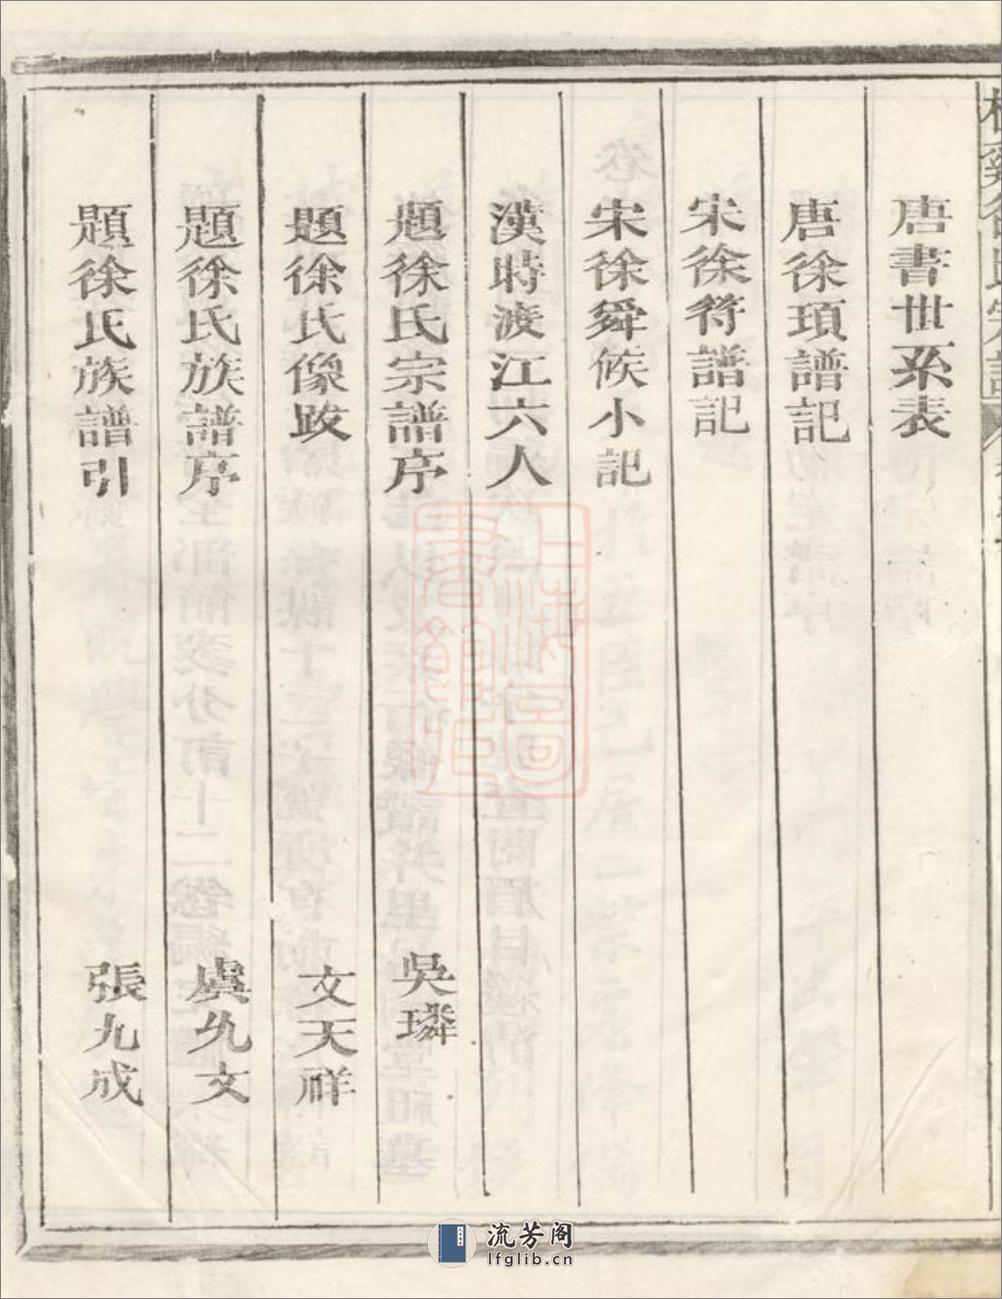 唐書世系表
唐徐項譜記
宋徐符譜記
宋徐舜候小記
漢時渡江六人
題徐氏宗譜序 吳璘
題徐氏像跋 文天祥
題徐氏族譜序 虞允文
題徐氏族譜引 張九成
上海圖書館藏
流芳阁
lfglib.cn